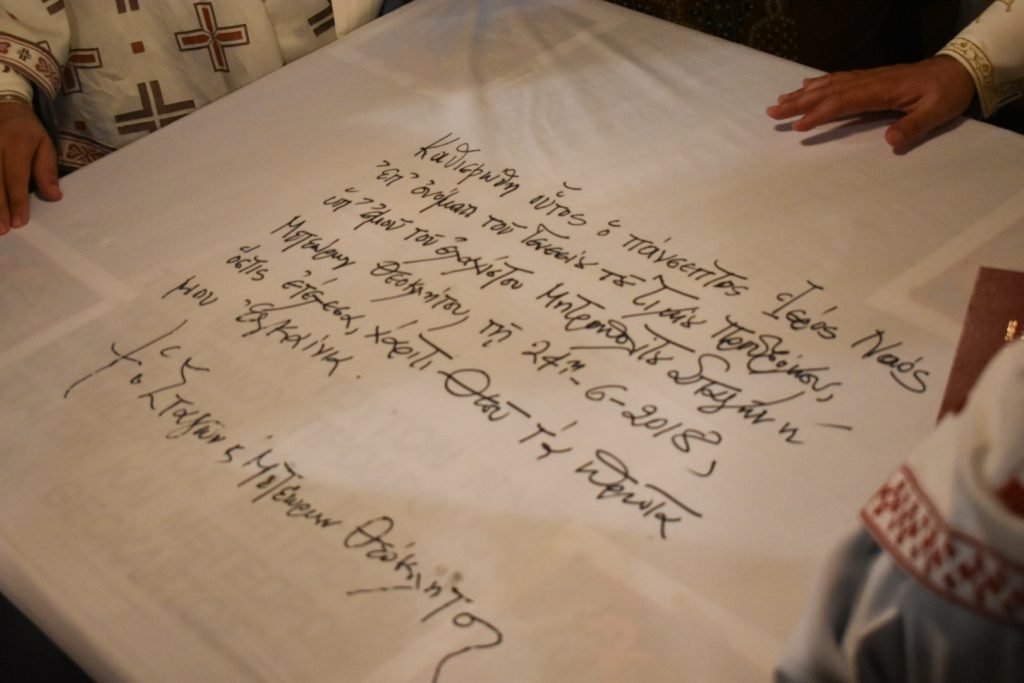 Καθιερώθη οὗτος ὁ πάνσεπτος Ἱερός Ναός
ἐπ' ὀνόματι τοῦ Γενεσίου τοῦ Τιμίου Προδρόμου,
ὑπ' ἐμοῦ τοῦ ἐλαχίστου Μητροπολίτου Σταγῶν κ
Μετεώρων Θεοκλήτου, τῇ 24ῃ-6-2018,
ὅστις ἐτέλεσα, χάριτι Θεοῦ τά πρῶτα
μου Ἐγκαίνια.
Σταγῶν κ Μετεώρων Θεόκλητος